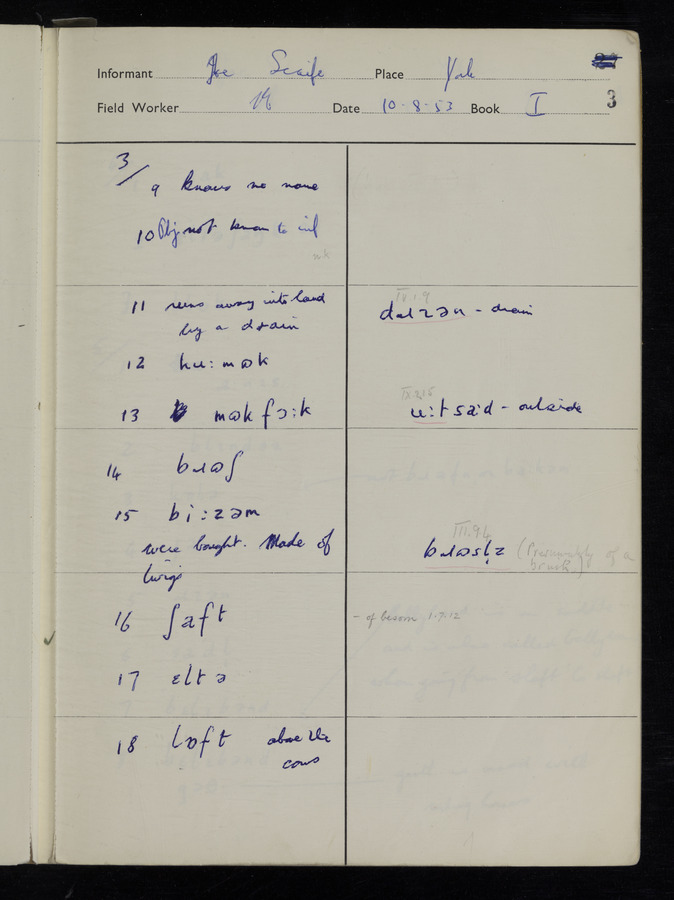 Informant Joe Scaife Place York
Field Worker Date 10-8-53 Book I 3
3/
9 knows no name
10 Obj. not known to inf
nk
11 runs away into land
by a drain
IV.1.9
dɹɛɪzən - drain
12 kʊ: mʊk
13 mʊk fɔ:k
IX.2.5
u:tsaːd - outside
14 bɹʊʃ
15 bi:zəm
were bought. Made of
twigs
III.9.4
bɹʊsl̩z (Presumably of a
brush.)
16 ʃaft
- of besom 1.7.12
17 ɛltə
18 lɒft above the
cows